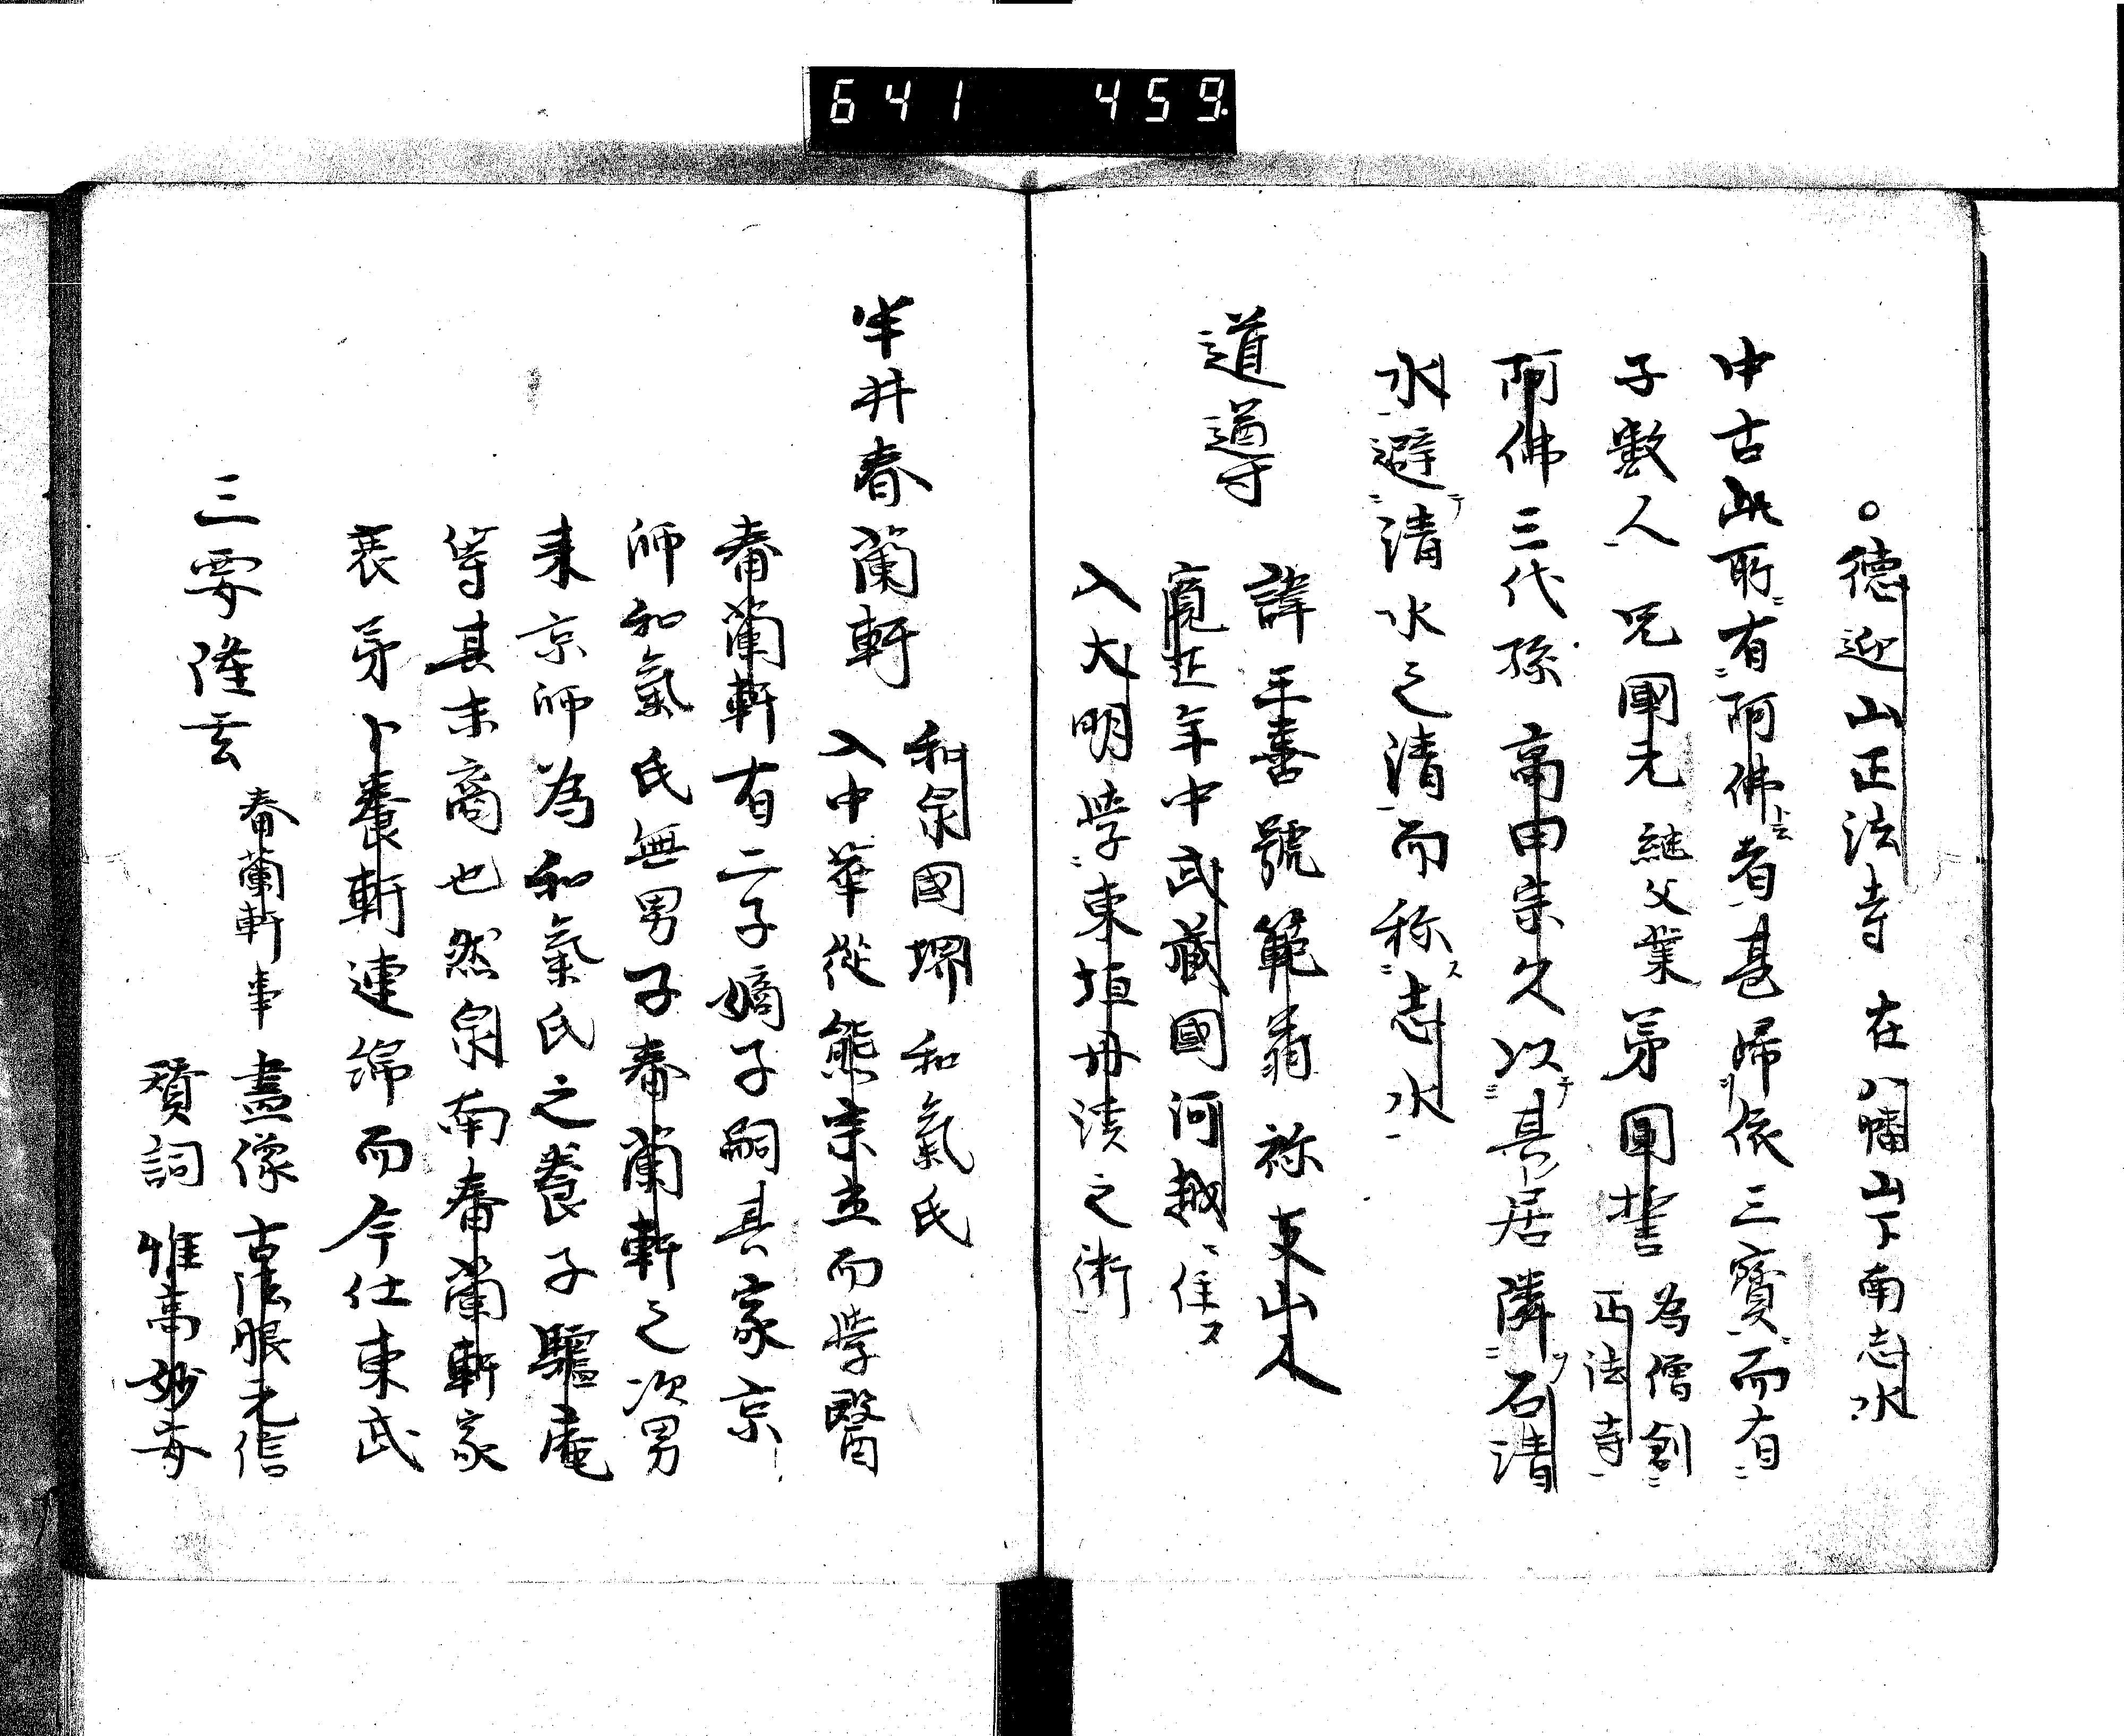 641 459.
○德迎山正法寺 在八幡山下南志水
中古此所有阿佛云者甚帰依三寳而有
子數人 兄圍元 継父業 弟圍誓 為僧創
正法寺
阿佛三代孫 高田宗久以其居隣石清
水避清水之清而称志水
道導
諱玉善號範翁祢支山人
寛正年中武蔵國河越住ス
入大明學東垣丹渓之術
半井春蘭軒 和泉國堺和氣氏
入中華從熊宗立而学醫
春蘭軒有二子嫡子嗣其家京
師和氣氏無男子春蘭軒之次男
来京師為和氣氏之養子驢庵
等其末裔也然泉南春蘭軒家
衰弟卜養軒連綿而今仕東武
三要隆玄 春蘭軒事 畫像 古法眼元信
賛詞 惟高妙安